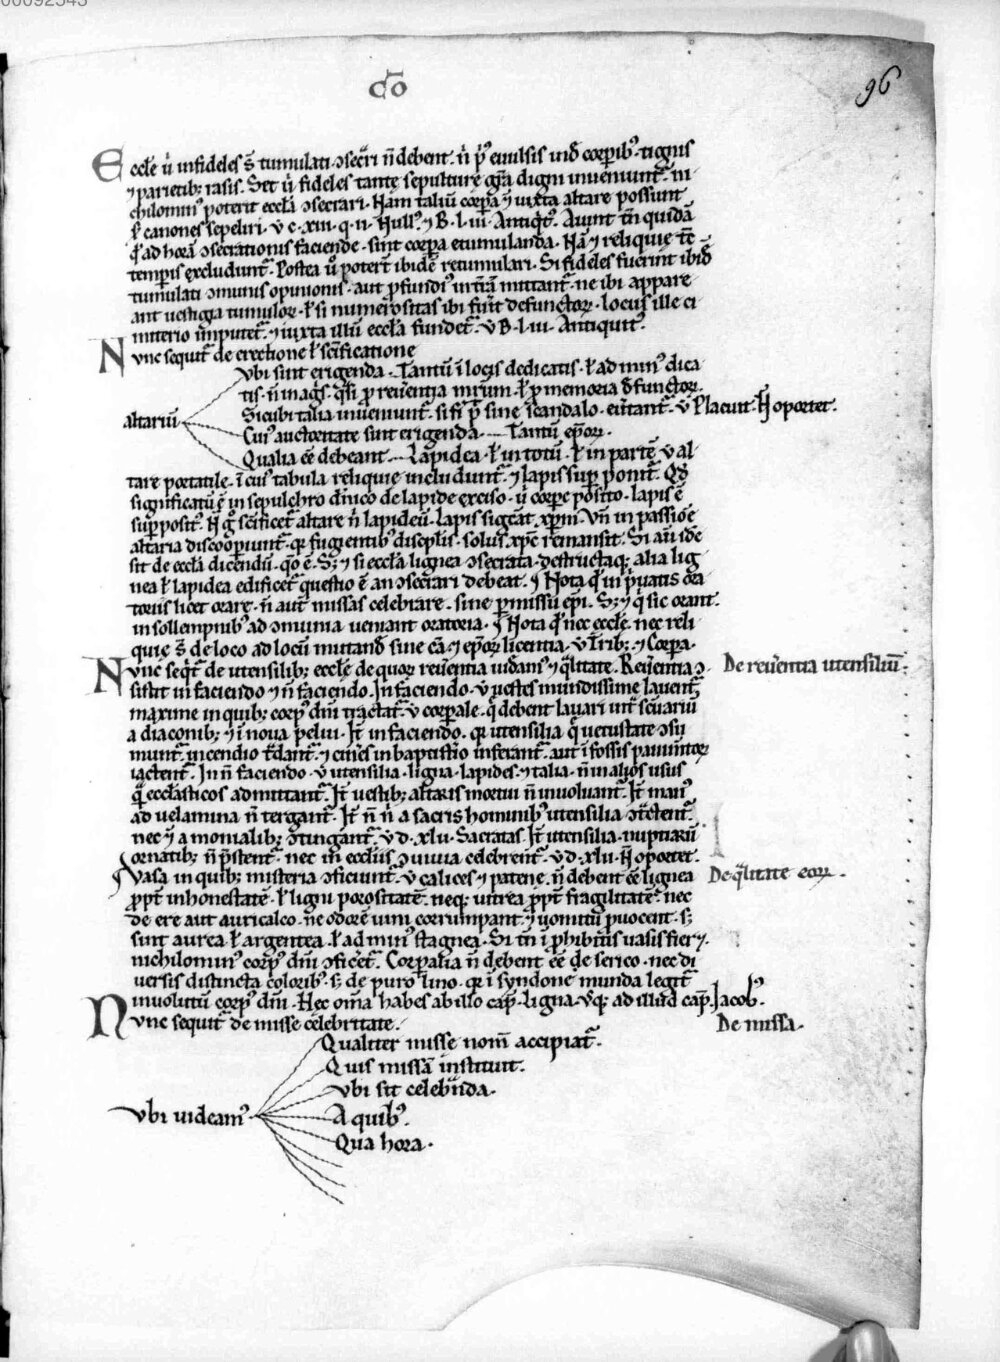 00092543
cō
96
Eccłe ů infideles s̄ tumulati ɔsecri n̄ debent. n̄ p̾ euulsis inđ corꝑibꝰ tignis
⁊ parietibꝫ rasis. Set ů fideles tante sepulture gr̄a digni inueniunt̄. ni
chilominꝰ poterit eccłia ɔsecrari. Nam taliū corꝑa ⁊ iuxta altare possunt
ł canones sepeliri. v c. xiii. q. ii. Nullꝰ. ⁊ B. l. iii. Antiqͥtꝰ. Aiunt tn̄ quidā
ꝙ ad horā ɔsecrationis faciende. sint corꝑa etumulanda. Nā ⁊ reliquie tē
temꝑis excludunt̄. Postea ů poterēt ibidē retumulari. Si fideles fuerint ibiđ
tumulati ɔmunis opinionis. aut ꝓfundiꝰ in t̄rā mittant̄. ne ibi appare
ant uestigia tumuloꝝ. ł si numerositas ibi fūit defunctoꝝ. locus ille ci
miterio īputet̄. ⁊ iuxta illū eccłia fundet̄. v B. l. iii. Antiquitꝰ.
Nvnc sequit̄ de erectione ł scīficatione
altariū
Vbi sint erigenda. Tantū ī locis dedicatis. ł ad minꝰ dica
tis. n̄ in agͥs. q̄si ꝓ reuentia mr̄um. ł ꝓ memoria đfunctoꝝ.
Sicubi talia inueniunt̄. si fi p̄t sine scandalo. euītant̄. v Placuit. N̄ oportet.
Cuiꝰ auctoritate sunt erigenda — Tantū ep̄oꝝ.
Qualia eē debeant — Lapidea. ł in totū. ł in parte. v al
tare portatile. ī cuiꝰ tabula reliquie includunt̄. ⁊ lapis suꝑ ponit̄. Qđ
significatū ē in sepulchro dn̄ico de lapide exciso. ů corꝑe posito. lapis ē
suꝑpositꝰ. N̄ gͦ scīficet̄ altare n̄ lapideū. lapis sigͣt xp̄m. Vn̄ in passiōe
altaria discoopiunt̄. qꝛ fugientibꝰ discīplis. solus xp̄c remansit. Si aū idē
sit de eccłia dicendū. qō ē. Sꝫ ⁊ si eccłia lignea ɔsecrata. destructaqꝫ alia lig
nea ł lapidea edificet̄ questio ē an ɔsecrari debeat. ¶ Nota ꝙ in p̾uatis ora
toriis licet orare. n̄ aut̄ missas celebrare. sine ꝑmissu ep̄i. Sꝫ ⁊ ꝙ sic orant.
in sollempnibꝰ ad ɔmunia ueniant oratoria. ¶ Nota ꝙ nec eccłe. nec reli
quie s̄ de loco ad locū mutand̄ sine cā. ⁊ ep̄oꝝ licentia. v Trib̾. ⁊ Corꝑa.
Nvnc seqͥt̄ de utensilibꝫ eccłe. de quoꝝ reūentia uidamꝰ ⁊ qͣlitate. Reūentia ɔ
De reūentia utensiliū.
sistit in faciendo ⁊ n̄ faciendo. In faciendo. v uestes mundissime lauent̄
maxime in quibꝫ corpꝰ dn̄i tractat̄. v corꝑale. q̄ debent lauari int̄ sc̄uariū
a diaconibꝫ. ⁊ ī noua pelui. It̄ in faciendo. qꝛ utensilia q̄ uetustate ɔsū
munt̄. incendio t̄dant̄. ⁊ cin̄es in baptist̄io inferant̄. aut ī fossis pauim̄toꝝ
iactent̄. In n̄ faciendo. v utensilia. ligna. lapides. ⁊ talia. n̄ in alios usus
q̄ eccłasticos admittant̄. It̄ uestibꝫ altaris mortui n̄ inuoluant̄. It̄ manꝰ
ad uelamina n̄ tergant̄. It̄ n̄ n̄ a sacris hominibꝰ utensilia ɔt̄ctent̄.
nec ⁊ a monialibꝫ ɔtingant̄. v d. xlv. Sacratas. It̄ utensilia nuptiarū
ornatibꝫ n̄ p̄stent̄. nec in eccłiis ɔuiuia celebrent̄. v d. xlii. N̄ oportet.
¶ Vasa in quibꝫ misteria ɔficiunt̄. v calices ⁊ patene. n̄ debent eē lignea
De qͣlitate eaꝝ.
ꝓpt̄ inhonestatē. ł ligni porositatē. neqꝫ uitrea ꝓpt̄ fragilitatē. nec
de ere aut auricalco. ne odorē uini corrumpant. ⁊ uomitū ꝓuocent. sꝫ
sint aurea. ł argentea. ł ad minꝰ stagnea. Si tn̄ ī ꝓhibitis uasis fieri.
nichilominꝰ corpꝰ dn̄i ɔficet̄. Corꝑalia n̄ debent eē de serico. nec di
uersis distincta coloribꝰ. sꝫ de puro lino. qꝛ ī syndone munda legit̄
inuolutū corpꝰ dn̄i. Hec om̄a habes ab illo cap̄. ligna. vqꝫ ad illud cap̄. Jacobꝰ.
Nvnc sequit̄ de misse celebritate.
De missa.
Vbi uideamꝰ
Qualiter misse nom̄ accipiat̄.
Quis missā īstituit.
Vbi sit celebrāda.
A quibꝰ.
Qua hora.